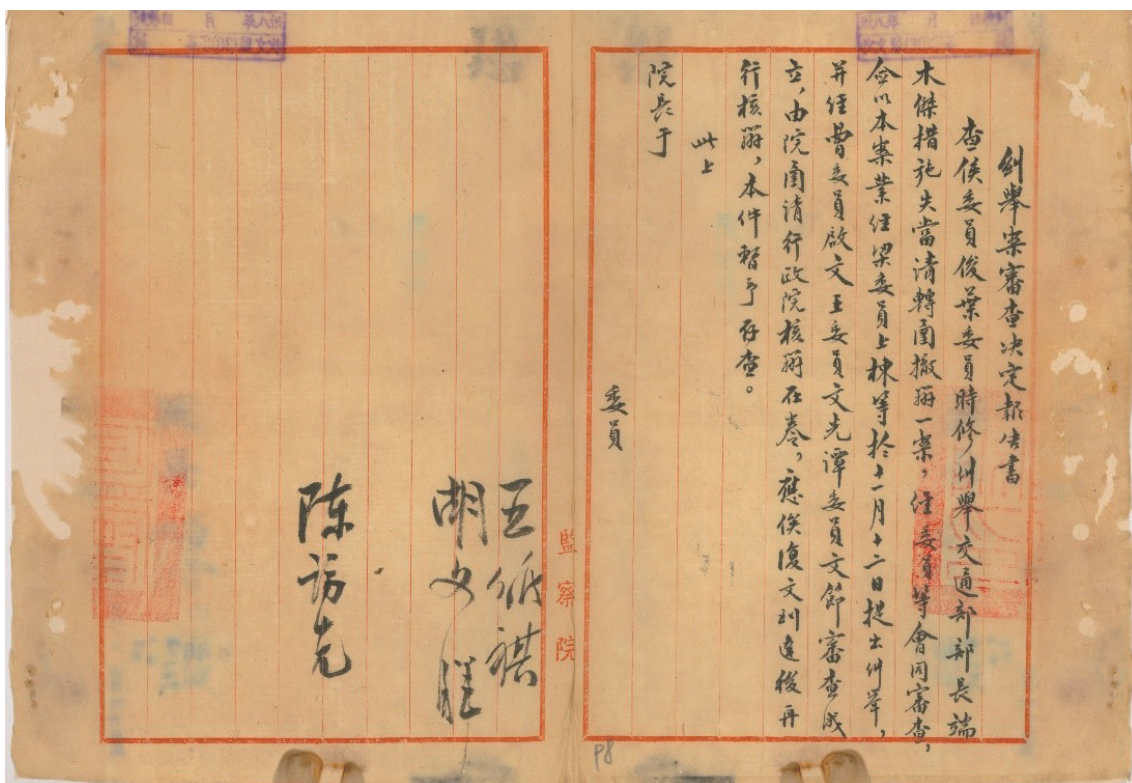 糾舉案審查決定報告書
查侯委員俊葉委員時修糾舉交通部部長端
木傑措施失當請轉函撤辦一案，經委員等會同審查，
僉以本案業經梁委員上棟等於十一月十二日提出糾舉，
并經曹委員啟文王委員文光譚委員文節審查成
立，由院函請行政院核辦在卷，應俟復文到達後再
行核辦，本件暫予存查。
此上
院長于
委員
監察院
陳訪先
P8